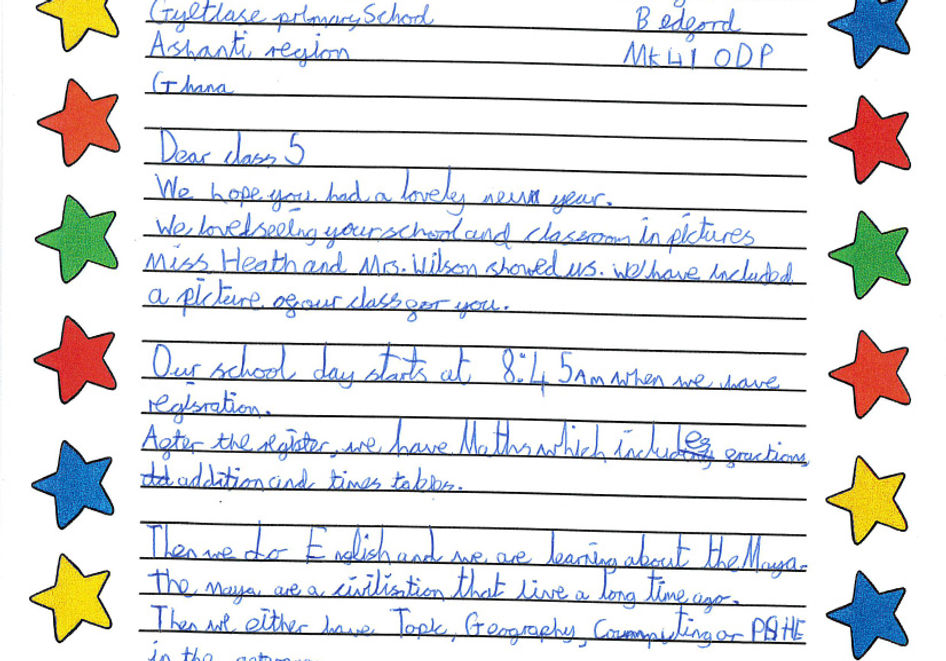 primary School
Bedford
Ashanti region
MK41 0DP
Ghana
Dear class 5
We hope you had a lovely new year.
We loved seeing your school and classroom in pictures
Miss Heath and Mrs. Wilson showed us. We have included
a picture of our class for you.
Our school day starts at 8:45am when we have
regisration.
After the register, we have Maths which includes fractions,
addition and times tables.
Then we do English and we are learning about the Maya.
The maya are a civilistion that live a long time ago.
Then we either have Topic, Geography, Coumputing or PSHE
in the